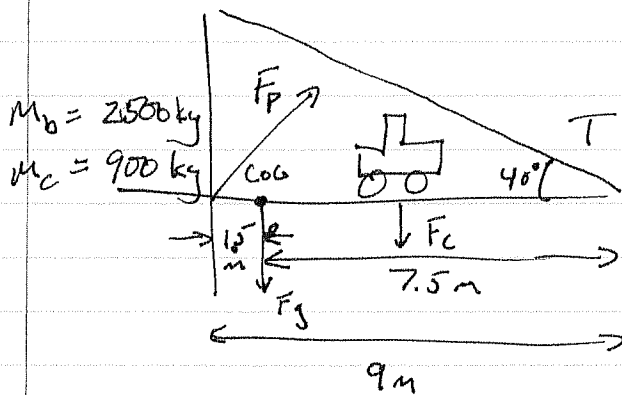 M_b = 2500 kg
M_c = 900 kg
F_P
COG
T
40°
1.5 m
F_c
7.5 m
F_g
9 m